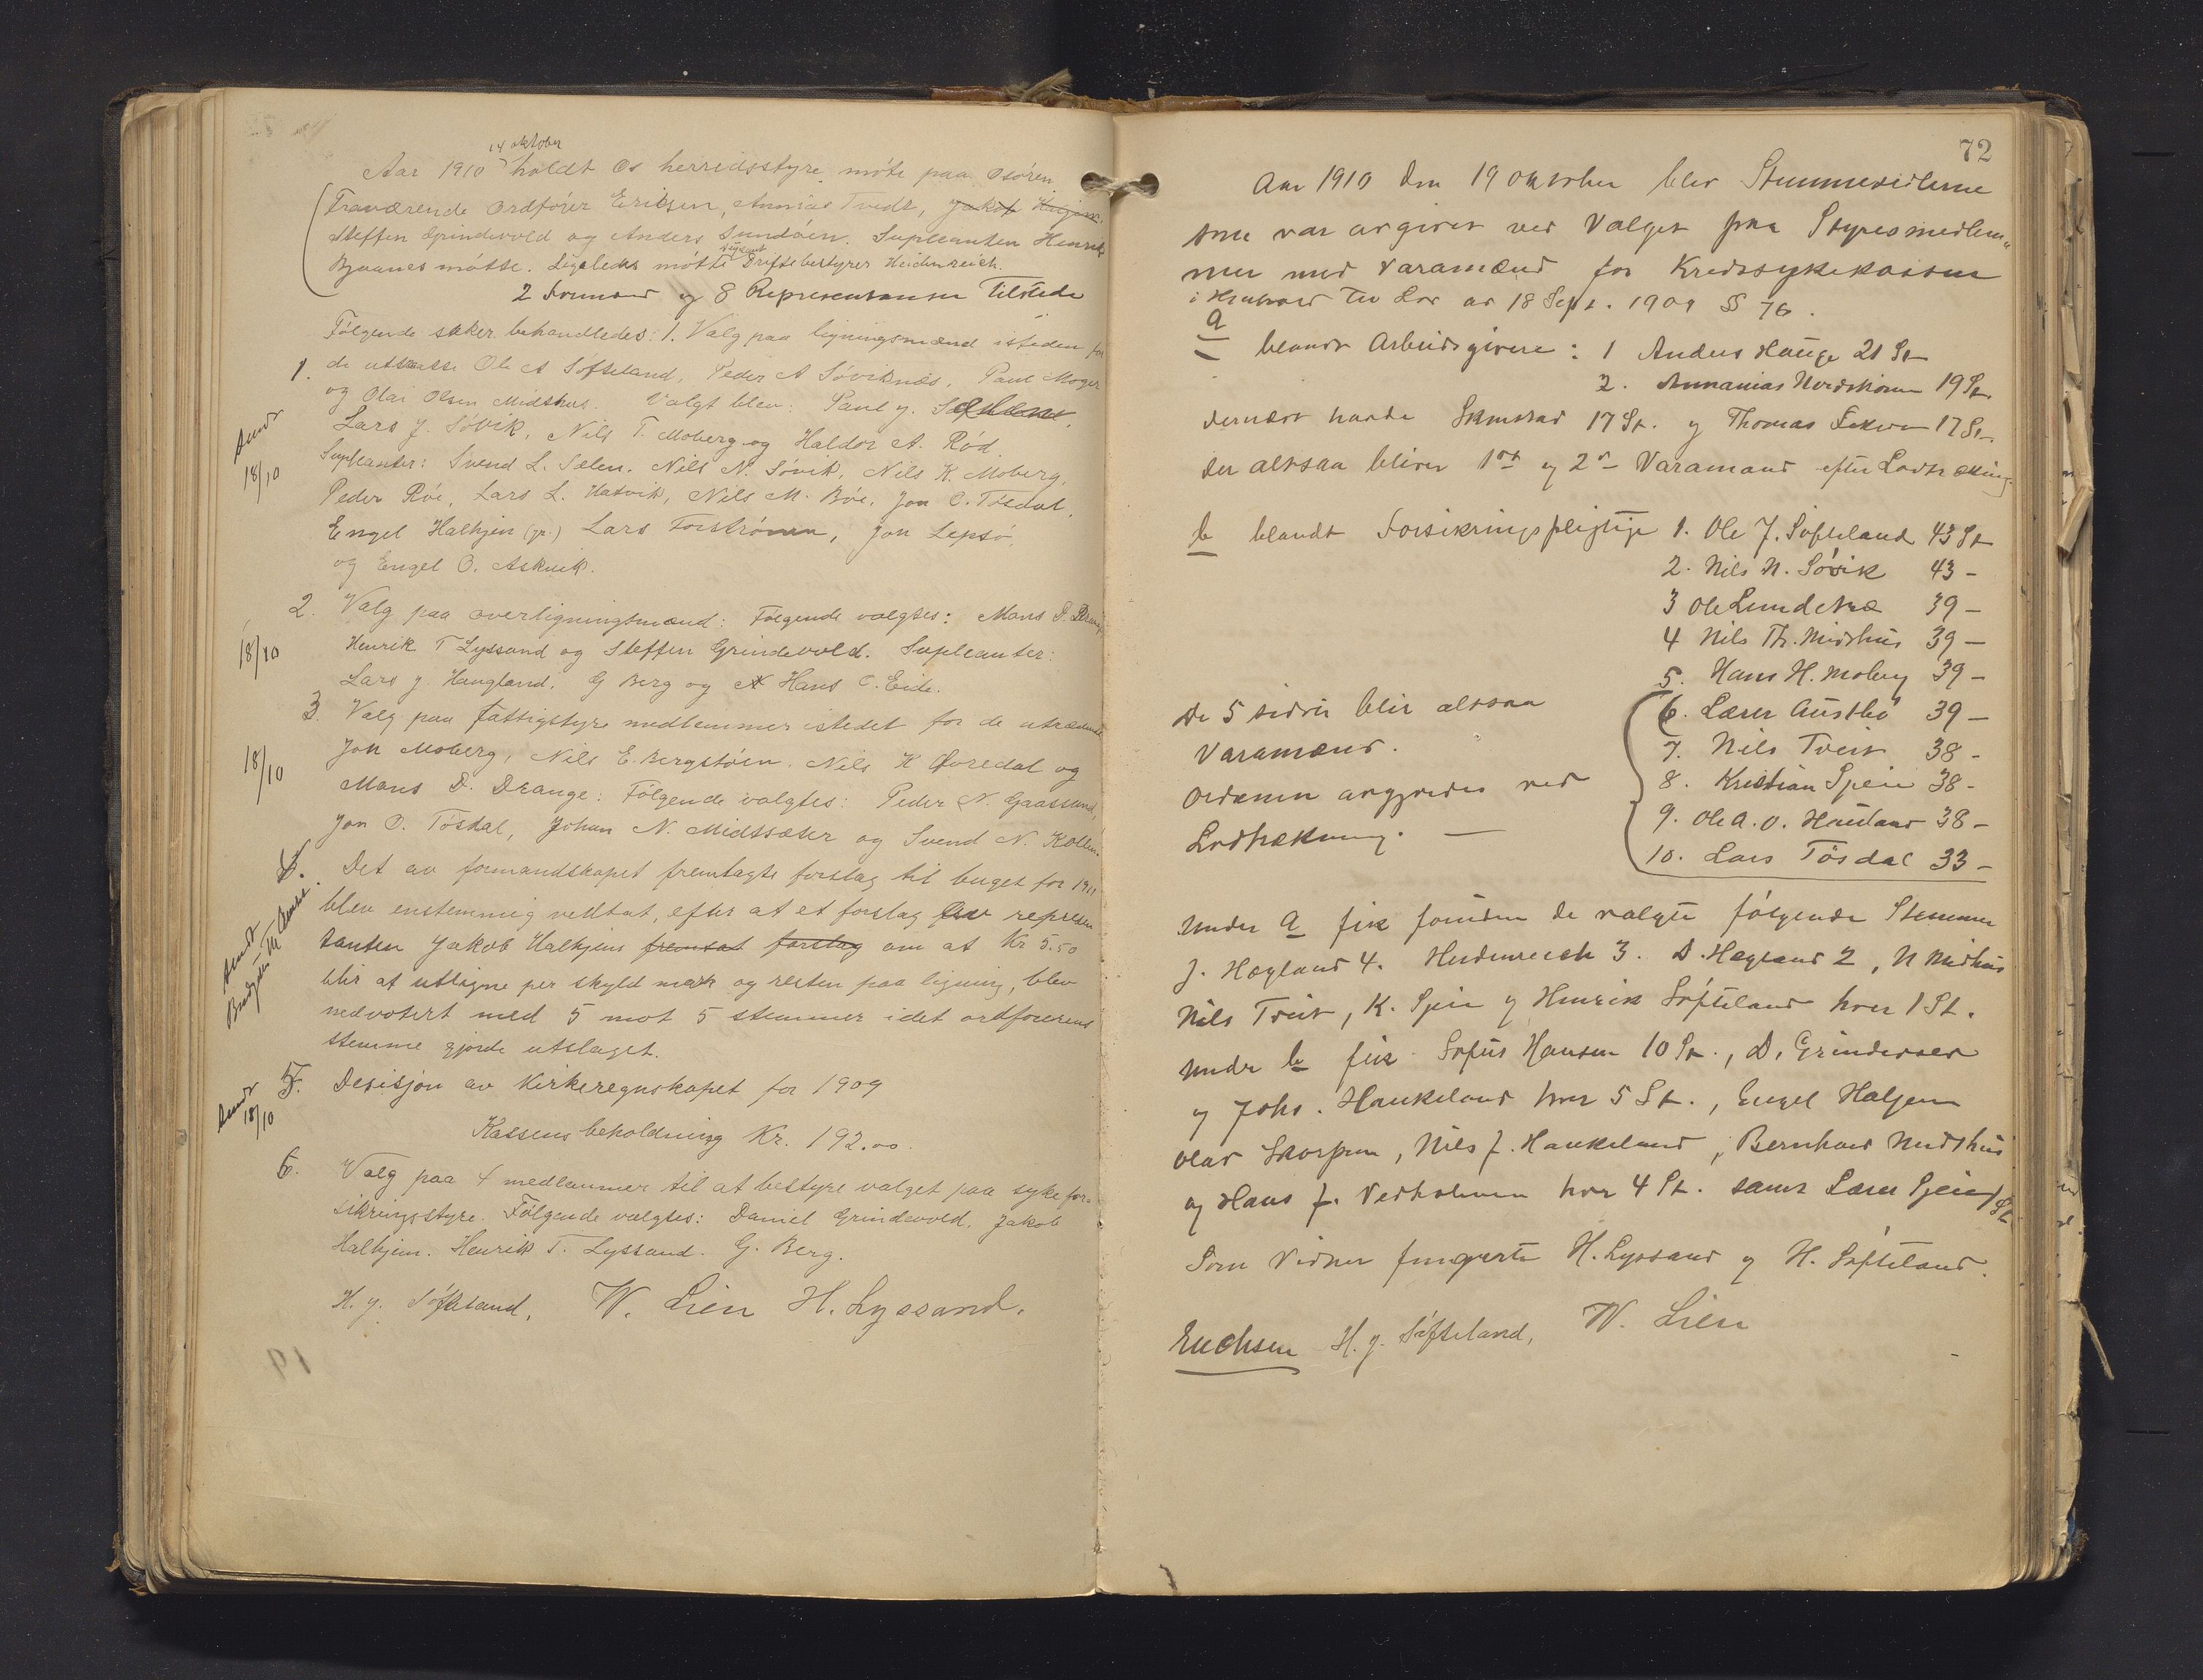 14 oktober
Aar 1910 holdt Os herredsstyre møte paa Osøren.
Fraværende Ordfører Ericsen, Annias Tvedt, Jakob Haljem.
Steffen Grindevold og Anders Sundøen. Supleanten Henrik
Bjaanes møtte. Ligeledes møtte Driftsbestyrer Heidenreich.
2 Formænd og 8 Representanter tilstede
Følgende saker behandledes: 1. Valg paa ligningsmænd isteden for
1. de uttraatte Ole A Søfteland, Peder A Søviknæs, Paul Moger
og Olai Olsen Midthus. Valgt blev: Paul J.
Lars J. Søvik, Nils T. Moberg og Haldor A. Rød.
Sendt
18/10
Supleanter: Svend L. Sælen. Nils N. Søvik, Nils K. Moberg,
Peder Røe, Lars L. Hatvik, Nils M. Bøe, Jon O. Tøsdal,
Engel Halhjem (jr.) Lars Forstrønen, Jon Lepsø,
og Engel O. Askvik.
2. Valg paa overligningsmænd: Følgende valgtes: Mons D. Drange
18/10
Henrik T Lyssand og Steffen Grindevold. Supleanter:
Lars J. Haugland. G Berg og Hans O. Eide.
3. Valg paa Fattigstyre medlemmer istedet for de utrædende
18/10
Jon Moberg, Nils E. Bergstøen. Nils H Øvredal og
Mons D. Drange: Følgende valgtes: Peder N. Gaassand,
Jon O. Tøsdal, Johan N. Midtsæter og Svend N. Kollen.
4. Det av formandskapet fremlagte forslag til buget for 1911
blev enstemmig vedtat, efter at et forslag fra represen
Sendt
Budgettet til
tanten Jakob Halhjem fremsat forslag om at Kr 5.50
blir at utligne per skyld mark og resten paa ligning, blev
nedvotert med 5 mot 5 stemmer idet ordførerens
stemme gjorde utslaget.
5. Desisjon av Kirkeregnskapet for 1909
Sendt
18/10
Kassens beholdning Kr. 192.00.
6. Valg paa 4 medlemmer til at bestyre valget paa syke for-
sikringsstyre. Følgende valgtes: Daniel Grindevold, Jakob
Halhjem. Henrik T. Lyssand. G. Berg.
H. J. Søfteland, W. Lien H. Lyssand.
72
Aar 1910 den 19 oktober blev Stemmesedlerne
som var avgivet ved Valget paa Styresmedlem„
mer med Varamænd for Kredssykekassen
i Henhold til Lov av 18 Sept. 1909 § 76.
a blandt Arbeidsgivere: 1 Anders Hauge 21 St
2. Annanias Nordstrønen 19 St.
dernæst havde Skmstad 17 St. og Thomas 17 St.
der altsaa bliver 1ste og 2den Varamand efter Lodtrækning.
b blandt Forsikringspligtige 1. Ole J. Søfteland 43 St
2. Nils N. Søvik 43 -
3 Ole Lundetræ 39 -
4 Nils Th. Midthus 39 -
5. Hans H. Moberg 39 -
De 5 sidste blir altsaa
Varamænd.
Ordenen avgjordes ved
Lodtrækning. -
6. Lærer Austbø 39 -
7. Nils Tveit 38 -
8. Kristian Gjeie 38 -
9. Ole A. O. Hauland 38 -
10. Lars Tøsdal 33 -
Under a fik foruden de valgte følgende Stemmer
J. Hægland 4. Heidenreich 3. D. Hægland 2, N Midthus
Nils Tveit, K. Gjeie og Henrik Søfteland hver 1 St.
Under b fik Sofus Hansen 10 St., D. Grindevold
og Johs. Haukeland hver 5 St., Engel Haljem
Olav Skorpen, Nils J. Haukeland, Bernhard Midthus
og Hans J. Vedholmen hver 4 St. samt Lærer Gjeie 1 St
Som Vidner fungerte H. Lyssand og H. Søfteland.
Erichsen H. J. Søfteland, W. Lien